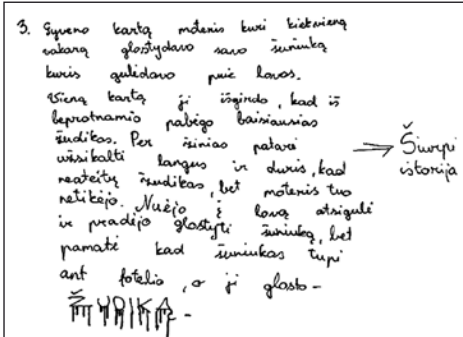 3. Gyveno kartą moteris kuri kiekvieną
vakarą glostydavo savo šuniuką
kuris gulėdavo prie lovos.
Vieną kartą ji išgirdo, kad iš
beprotnamio pabėgo baisiausias
žudikas. Per žinias patarė
užsikalti langus ir duris, kad
neateitų žudikas, bet moteris tuo
netikėjo. Nuėjo į lovą atsigulė
ir pradėjo glostyti šuniuką, bet
pamatė kad šuniukas tupi
ant fotelio, o ji glosto -
ŽUDIKĄ -
Šiurpi
istorija